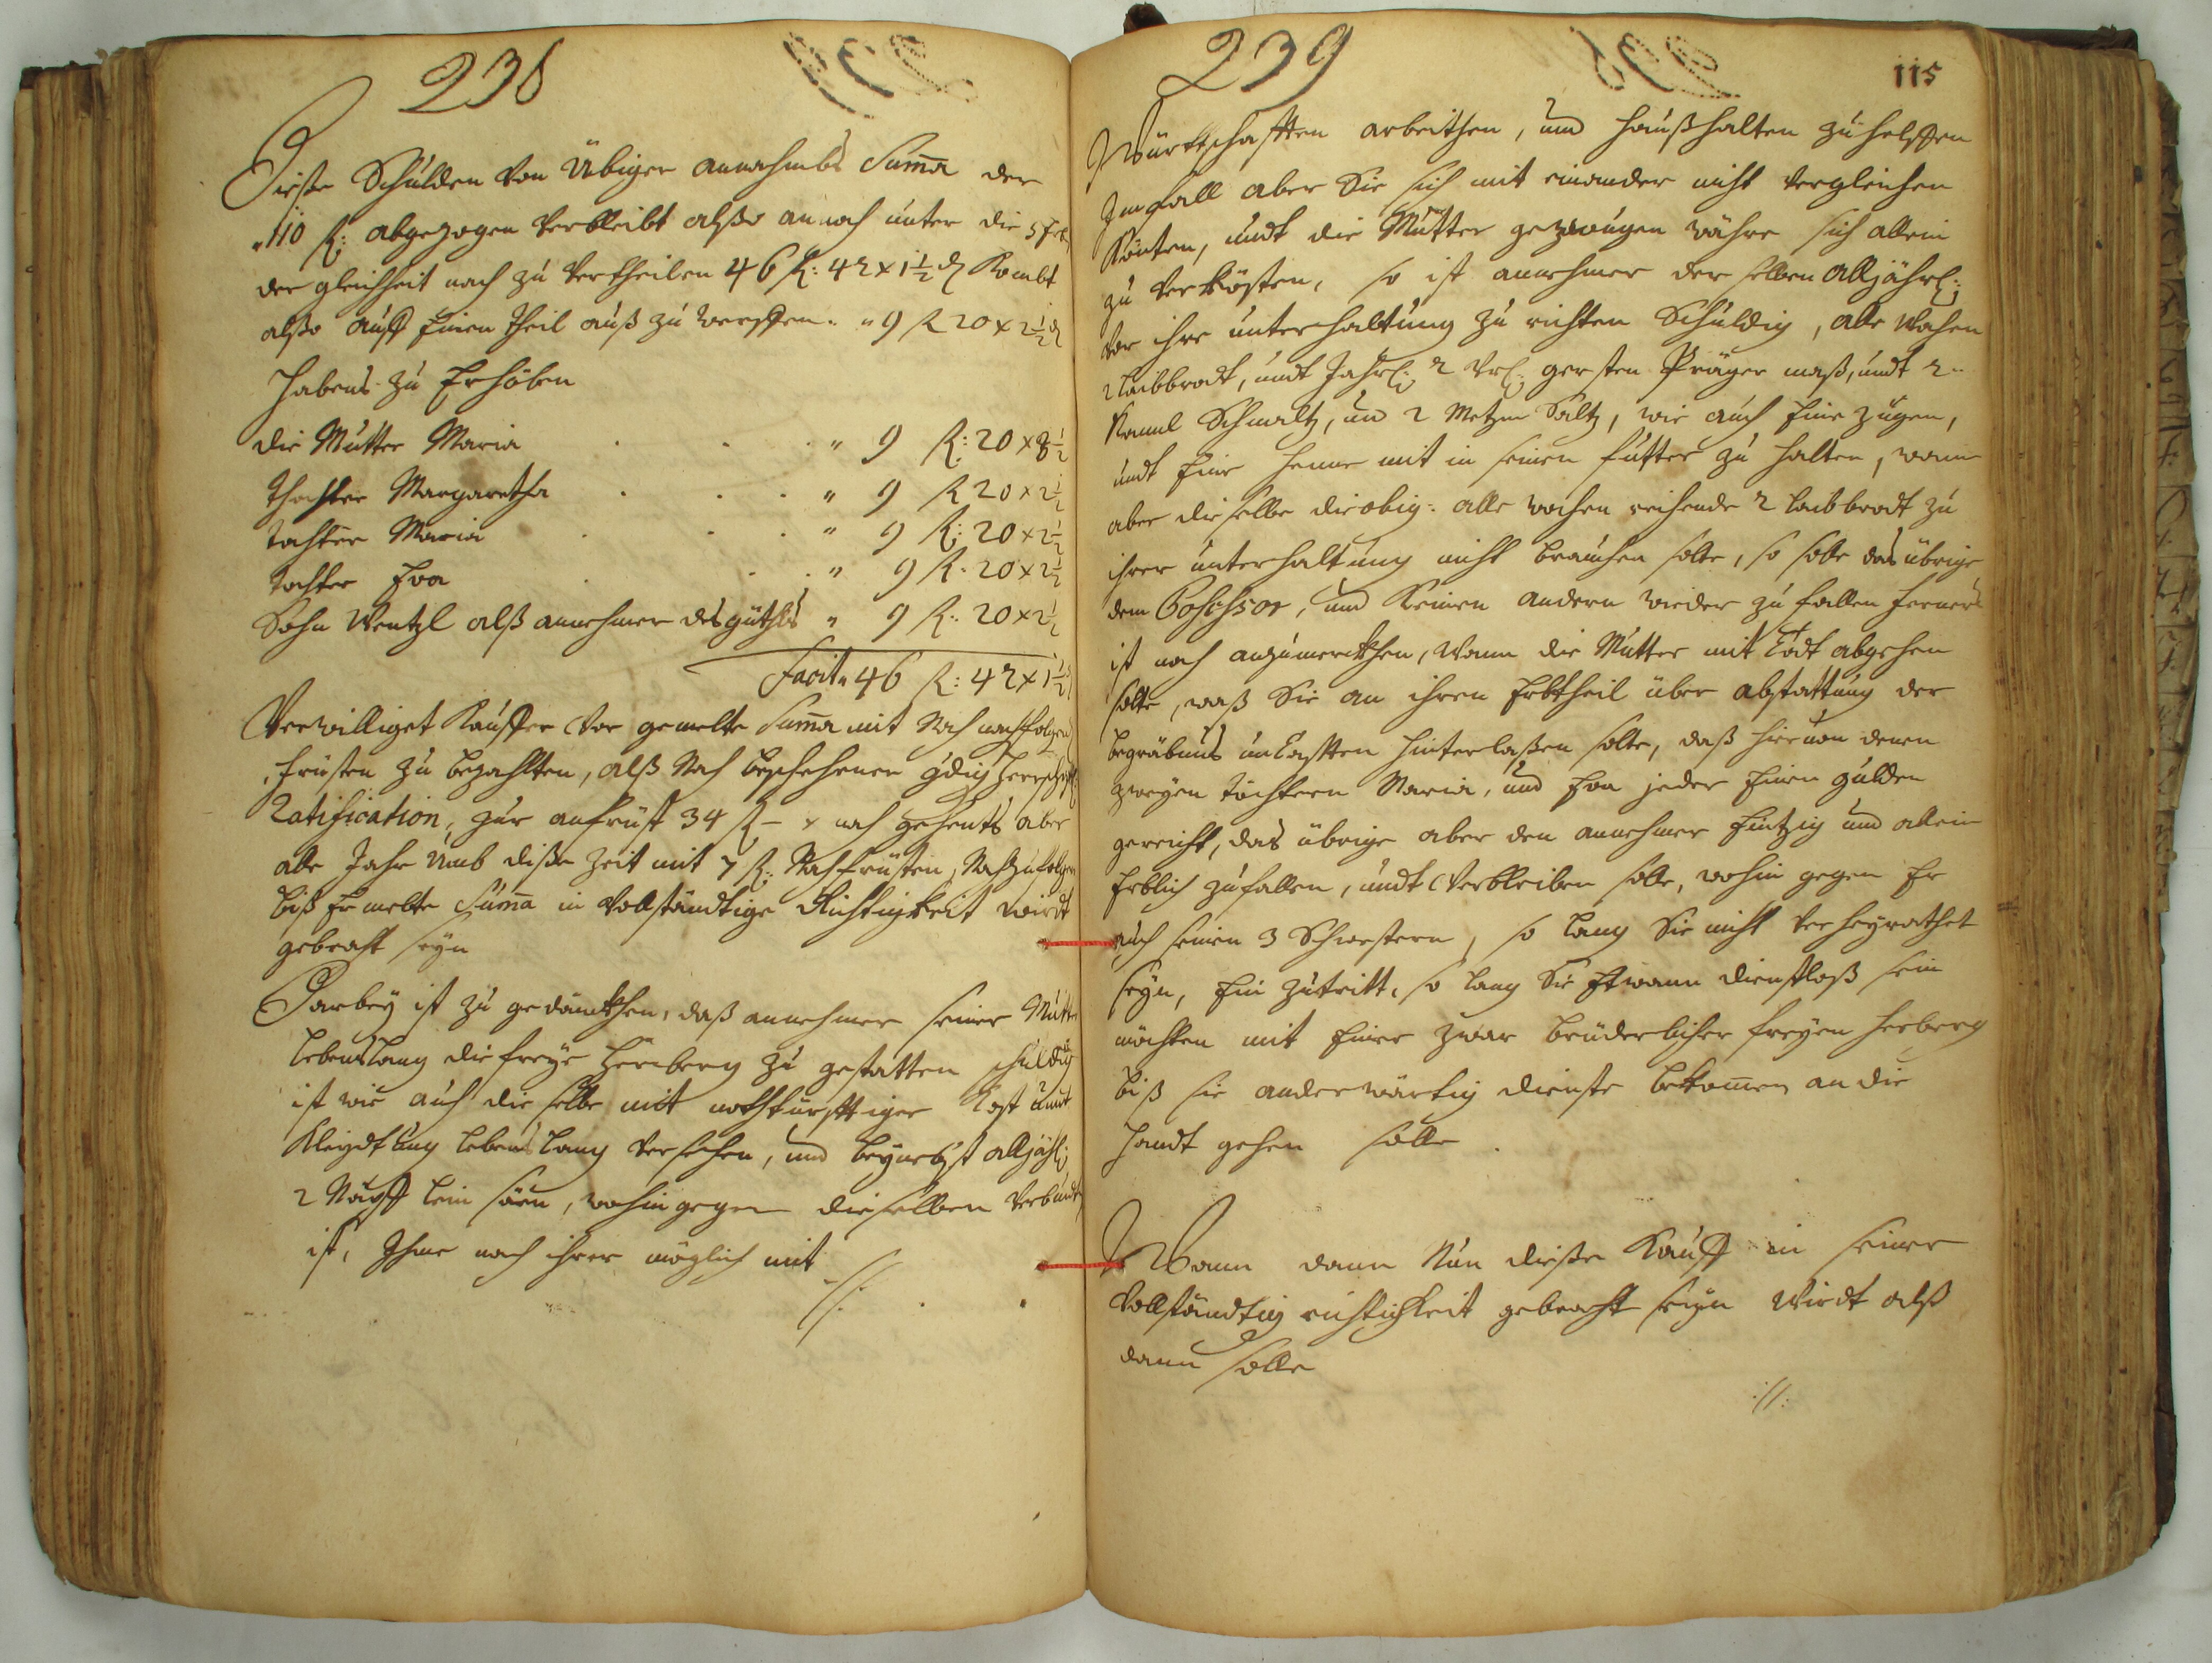 238
Dieße Schulden von Übiger annahmbs Suma der
110 f: abgezogen verbleibt alßo annoch unter die 5 Erb
der gleichheit nach zu vertheilen 46 f: 42 x 1½ d Kombt
alßo auff Einen Theil auß zu werffen. " 9 f 20 x 2½ d
Habens zu Erhöben
die Mutter Maria . . . " 9 f: 20 x 2½
Thochter Margaretha . . . " 9 f 20 x 2½
tochter Maria . . . " 9 f: 20 x 2½
tochter Eva . . . " 9 f. 20 x 2½
Sohn Wentzl alß annehmer des güthls " 9 f: 20 x 2½
Facit " 46 f: 42 x 1½
Verwilliget Kauffer vor gemelte Suma mit Nach nachfolgen
früsten zu bezahlten, alß Nach beschehener gdig Herrschfl
Ratification, zur anfrüst 34 f – x nach gehents aber
alle Jahr Umb diße Zeit mit 7 f: Nachfrüsten, Nachzufolgen
biß Ermelte Suma in Vollständtige Richtigkeit wirdt
gebracht seyn
Darbey ist zu gedänckhen, daß annehmer seiner Mutter
lebenslang die freye Herberg zu gestatten schuldig
ist wie auch die selbe mit nothturfftiger Kost undt
Kleydtung lebenslang versehen, und beynebst alljähl:
2 Näpff lein säen, wohingegen dieselben verbundt
ist, Ihme nach ihrer möglich mit
://:
239
115
Würtschafften arbeithen, und haußhalten zuhelffen
Imfall aber Sie sich mit einander nicht vergleichen
Könten, undt die Mutter gezwungen währe sich allein
zu verkösten, so ist annehmer der selben alljährl:
vor ihre unterhaltung zu richten Schuldig, alle wochen
2 laibbrodt, undt Jahrl: 2 Vrl: gersten Präger maß, undt 2
Kandl Schmaltz, und 2 Metzen Saltz, wie auch Eine zügen,
undt Eine henne mit in seinen futter zu halten, wann
aber dieselbe die obig: alle wochen reichende 2 laib brodt zu
ihrer unterhaltung nicht brauchen solte, so solle das übrige
dem Posessor, und Keinen andern wieder zu fallen ferners
ist noch anzumerckhen, Wann die Mutter mit Todt abgehen
solte, waß Sie an ihren Erbtheil über abstattung der
begräbnus unkosten hinterlaßen solte, daß hiervon denen
zweyen töchtern Maria, und Eva jeder Einen gulden
gereicht, das übrige aber den annehmer Eintzig und allein
Erblich zufallen, undt Verbleiben solle, wohin gegen Er
auch seinen 3 Schwestern, so lang Sie nicht verheyrathet
seyn, Ein zutritt, so lang Sie Etwann dienstloß sein
möchten mit Einer zwar brüderlicher freyen herberg
biß sie anderwärtig dienste bekomen an die
handt gehen solle
Wann dann Nun dießer Kauff in seiner
Vollständtig richtichkeit gebracht seyn wirdt alß
dann solle
://: